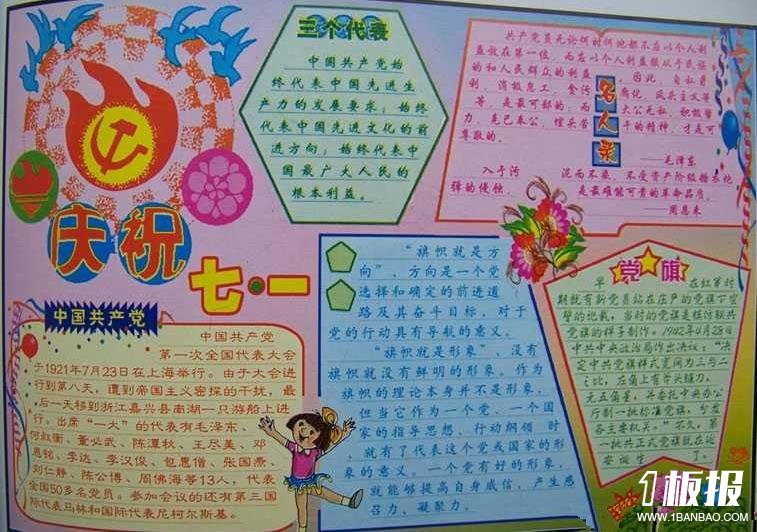 三个代表
中国共产党始
终代表中国先进生
产力的发展要求;始终
代表中国先进文化的前
进方向;始终代表中
国最广大人民的
根本利益。
共产党员无论何时何地都不应以个人利
益放在第一位,而应以个人利益服从于民族
的和人民群众的利益。因此,自私自
利,消极怠工,贪污腐化,风头主义等
等,是最可鄙的;而大公无私,积极努
力,克己奉公,埋头苦干的精神,才是可
尊敬的。
——毛泽东
名人录
入于污泥而不染,不受资产阶级糖衣炮
弹的侵蚀,是最难能可贵的革命品质。
周恩来
庆祝
七·一
中国共产党
中国共产党
第一次全国代表大会
于1921年7月23日在上海举行。由于大会进
行到第八天,遭到帝国主义密探的干扰,最
后一天移到浙江嘉兴县南湖一只游船上进
行。出席“一大”的代表有毛泽东、
何叔衡、董必武、陈潭秋、王尽美、邓
恩铭、李达、李汉俊、包惠僧、张国焘、
刘仁静、陈公博、周佛海等13人,代表
全国50多名党员。参加会议的还有第三国
际代表马林和国际代表尼柯尔斯基。
“旗帜就是方
向”,方向是一个党
选择和确定的前进道
路及其奋斗目标,对于
党的行动具有导航的意义。
“旗帜就是形象”,没有
旗帜就没有鲜明的形象。作为
旗帜的理论本身并不是形象,
但当它作为一个党、一个国
家的指导思想、行动纲领时
,就有了代表这个党或国家的形
象的意义。一个党有好的形象,
就能够提高自身威信,产生感
召力、凝聚力。
党旗
早在红军时
期就有新党员站在庄严的党旗下宣
誓的记载,当时的党旗是模仿联共
党旗的样子制作。1942年4月28日
中共中央政治局作出决议:“决
定中共党旗样式宽阔为三与二
之比,左角上有斧头镰刀,
无五角星,并委托中央办公
厅制一批标准党旗,分发
各主要机关。”不久,第
一批共正式党旗就在延
安诞生了。
1板报
WWW.1BANBAO.COM